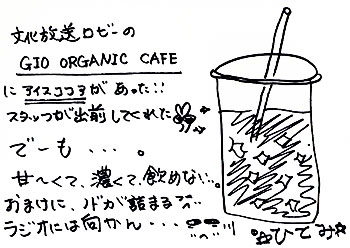 文化放送ロビーの
GIO ORGANIC CAFE
にアイスココアがあった!!
スタッフが出前してくれた
でーも・・・。
甘〜くて、濃くて、飲めない。
おまけに、ノドが詰まるな…
ラジオには向かん・・・
☆ひでみ☆